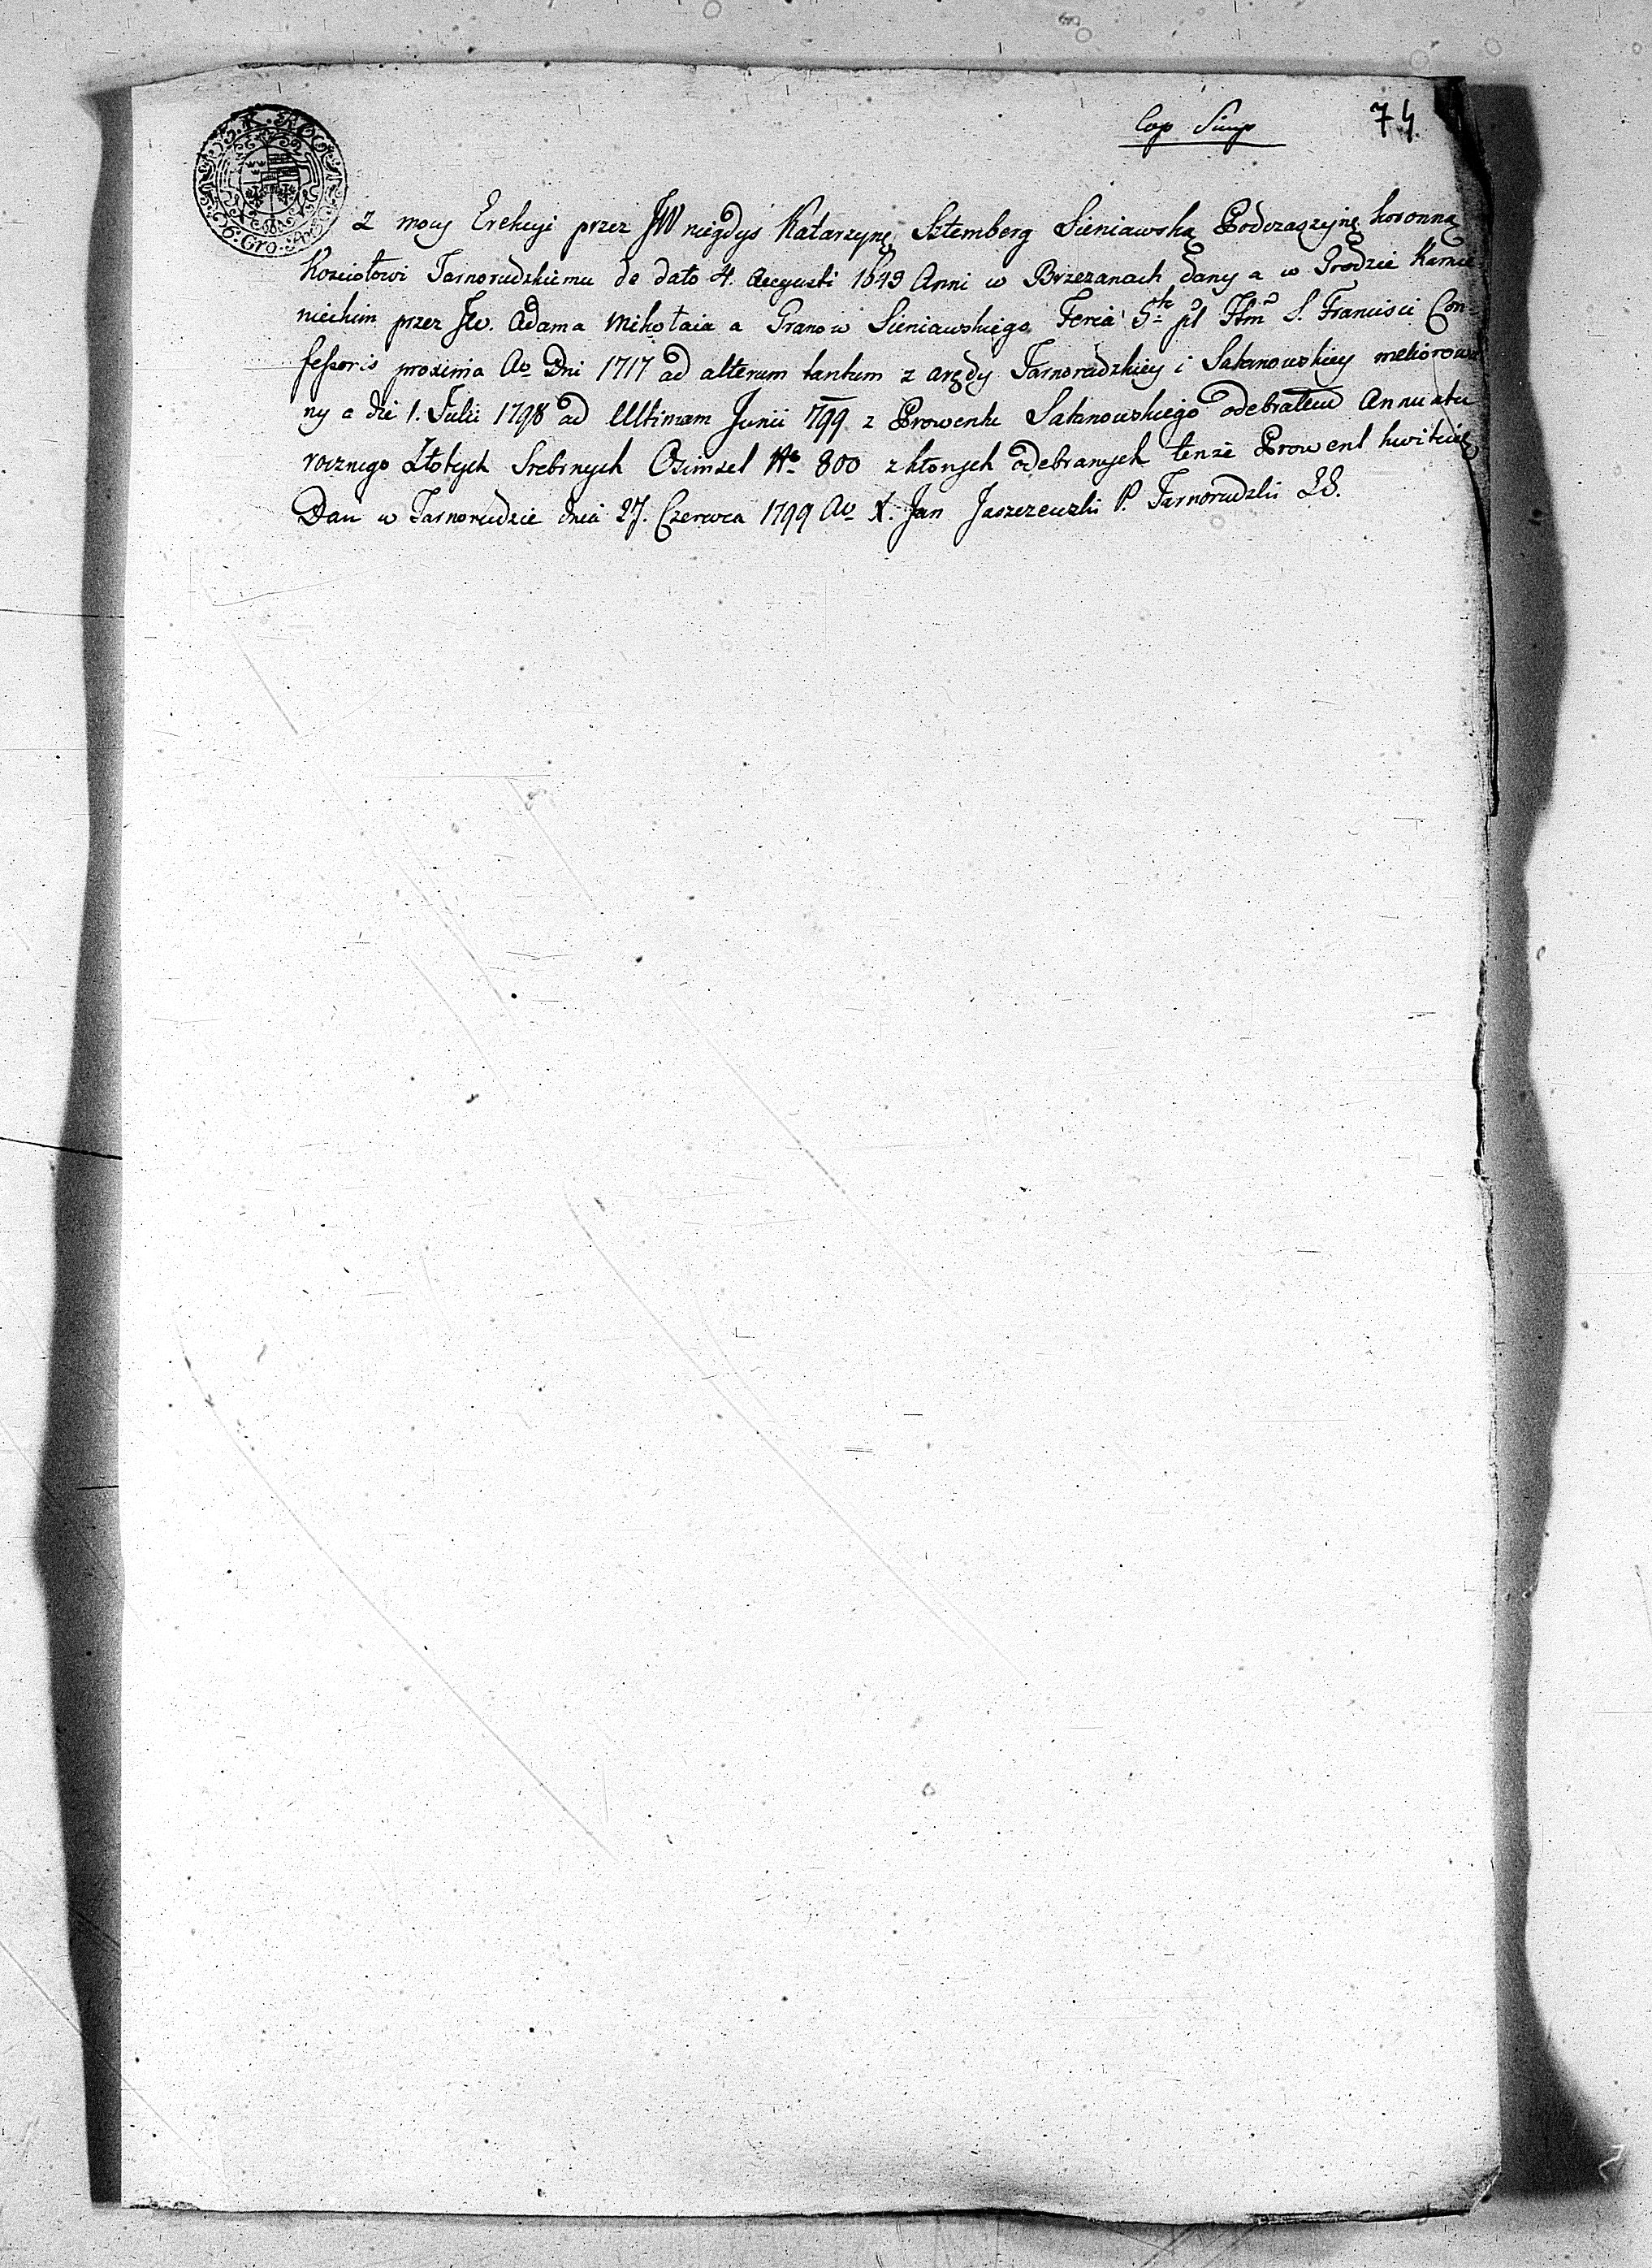 Cop Simp
74.
6. Gro.
Z mocy Erekcyi przez JW niegdys Katarzynę Sztemberg Sieniawską Podczaszynę koronną
Kosciołowi Tarnorudzkiemu de dato 4. Augusti 1649 Anni w Brzezanach dany a w Grodzie Kamie
nieckim przez JW. Adama Mikołaia a Granow Sieniawskiego Feria 5ta pt Ftm S. Francisci Con-
fessoris proxima Ao Dni 1717 ad alterum tantum z arędy Tarnorudzkiey i Satanowskiey meliorowa
ny a die 1. Julii 1798 ad Ultimam Junii 1799 z Prowentu Satanowskiego odebrałem Annuatu
rocznego Złotych Srebrnych Osimset No 800 z ktorych odebranych tenże Prowent kwituię
Dan w Tarnorudzie dnia 27. Czerwca 1799 Ao X. Jan Jaszczewski P. Tarnorudzki